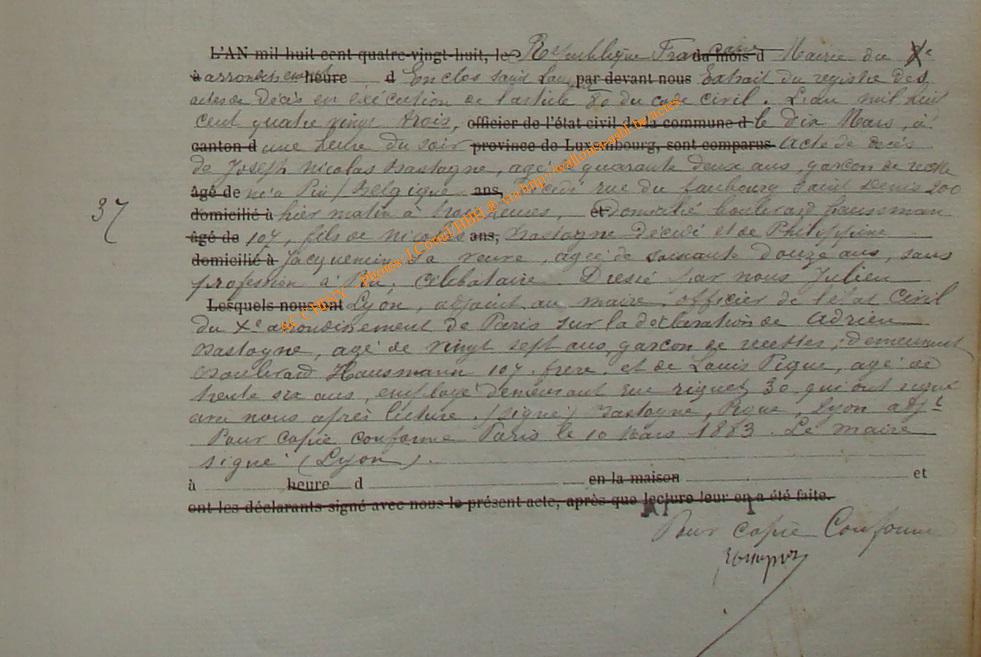 L'AN mil huit cent quatre-vingt-huit, le République Française du mois d Mairie du Xe
à arrondissement heure d Enclos saint Lau par devant nous Extrait du registre des
actes de décès en exécution de l'article 80 du code civil. L'an mil huit
cent quatre vingt trois, officier de l'état civil de la commune d le dix Mars, à
canton d une heure du soir province de Luxembourg, sont comparus Acte de décès
de Joseph Nicolas Bastogne, agé de quarante deux ans, garçon de recette
âgé de né à Pin / Belgique ans, Décédé rue du faubourg Saint Denis 200
37 domicilié à hier matin à trois heures, et Domicilié boulevard haussman
âgé de 107, fils de Nicolas ans, Bastogne décédé et de Philippine
domicilié à Jacquemin sa veuve, agée de soixante douze ans, sans
profession à Pin, Célibataire. Dressé par nous Julien
Lesquels nous ont Lyon, adjoint au maire, officier de l'état Civil
du Xe arrondissement de Paris sur la déclaration de Adrien
Bastogne, agé de vingt sept ans, garçon de recettes, demeurant
Boulevard Hausmann 107 frere et de Louis Pique, agé de
trente six ans, employé demeurant rue riquet 30 qui ont signé
avec nous après lecture. (signé) Bastogne, Pique, Lyon adjt
Pour copie conforme Paris le 10 Mars 1883. Le maire
signé (Lyon).
à heure d en la maison et
ont les déclarants signé avec nous le présent acte, après que lecture leur en a été faite.
Pour copie Conforme